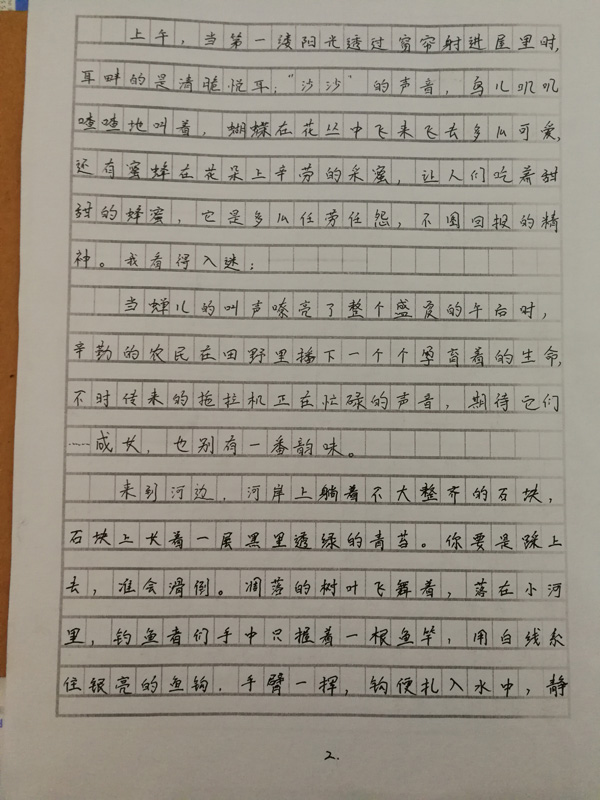 上午，当第一缕阳光透过窗帘射进屋里时，
耳畔的是清脆悦耳；“沙沙”的声音，鸟儿叽叽
喳喳地叫着，蝴蝶在花丛中飞来飞去多么可爱，
还有蜜蜂在花朵上辛劳的采蜜，让人们吃着甜
甜的蜂蜜，它是多么任劳任怨，不图回报的精
神。我看得入迷；
当蝉儿的叫声嘹亮了整个盛夏的午后时，
辛勤的农民在田野里播下一个个孕育着的生命，
不时传来的拖拉机正在忙碌的声音，期待它们
……成长，也别有一番韵味。
来到河边，河岸上躺着不大整齐的石块，
石块上长着一层黑里透绿的青苔。你要是踩上
去，准会滑倒。凋落的树叶飞舞着，落在小河
里，钓鱼者们手中只握着一根鱼竿，用白线系
住银亮的鱼钩，手臂一挥，钩便扎入水中，静
2.